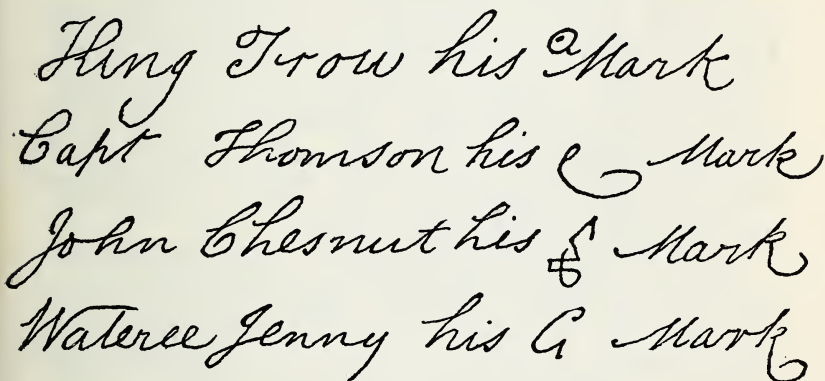 King Trow his a Mark
Capt Thomson his Mark
John Chesnut his Mark
Wateree Jenny his G Mark